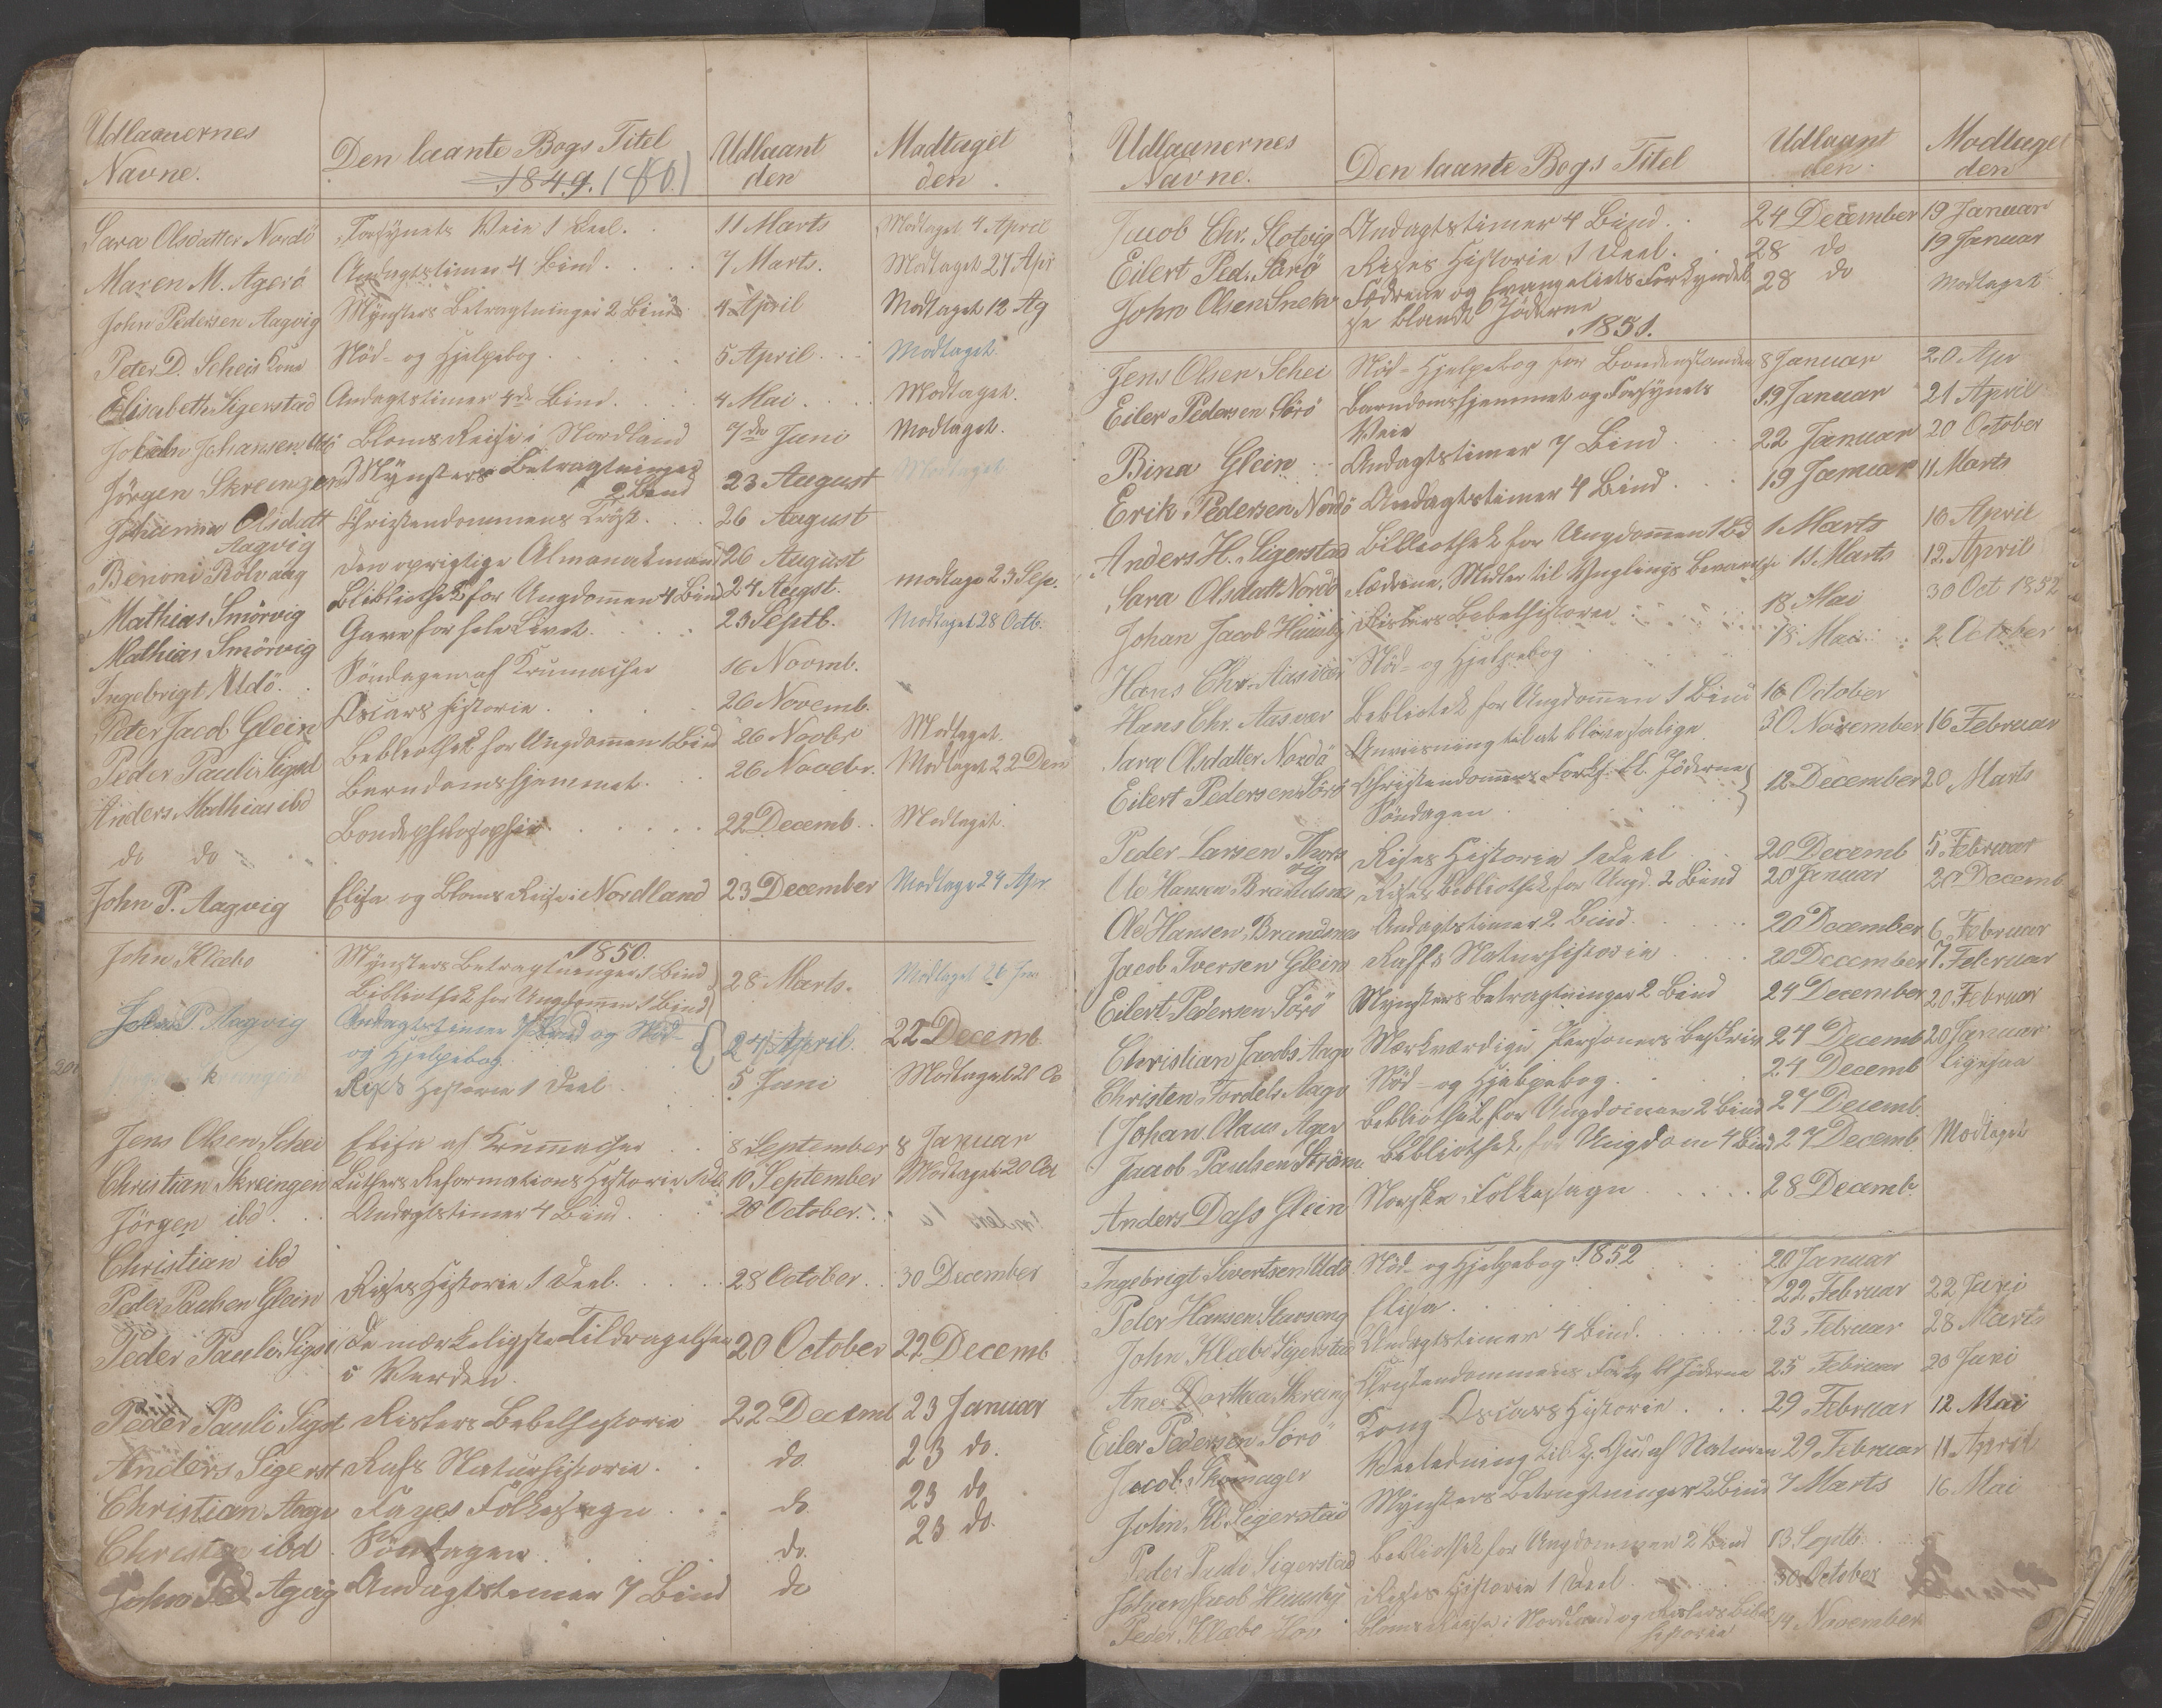 Udlaanernes
Navne.
Den laante Bogs Titel
1849.
Udlaant
den
Modtaget
den
Sara Olsdatter Nordö Forsynets Veie 1 Deel. 11 Marts Modtaget 4 April
Maren M. Agerö Andagtstimer 4 Bind. 7 Marts. Modtaget 27 Apr
John Pedersen Aagvig Mynsters Betragtninger 2 Bind 4 April Modtaget 12 Ag
Peter D. Scheis Kone Nöd- og Hjelpebog 5 April Modtaget.
Elisabeth Sigerstad Andagtstimer 4de Bind. 4 Mai Modtaget.
Johansen Bloms Reise i Nordland 7de Juni Modtaget.
Jörgen Skreingen Mynsters Betragtninger 23 August Modtaget
2 Bind
Johanna Olsdatt Christendommens Tröst. 26 August
Aagvig
Benoni Rölvaag Den oprigtige Almanakmand 26 August
Mathias Smörvig Bibliothek for Ungdommen 4 Bind 24 Augst. modtage 23 Sep.
Mathias Smörvig Gave for hele Livet. 23 Septb. Modtaget 28 Octb.
Ingebrigt Udö. Söndagen af Krumacher 16 Novmb.
Peter Jacob Glein Oscars Historie. 26 Novemb.
Peder Pauli Sigst Bebliothek for Ungdommen 1 Bind 26 Novbr Modtaget.
Anders Mathias ibd Barndomshjemmet. 26 Novebr. Modtaget 22 Dem
do do Bondephilosophie 22 Decemb. Modtaget.
John P. Aagvig Elisa og Bloms Reise i Nordland 23 December Modtage 24 Apr
1850.
John Klæbo Mynsters Betragtninger 1 Bind 28 Marts. Modtaget 26
Bibliothek for Ungdommen 1 Bind
John P. Aagvig Andagtstimer 7 Bind og Nöd- 24 April. 22 Decemb.
og Hjelpebog
Rises Historie 1 Deel 5 Juni Modtaget 20 Oc
Jens Olsen Schei Elisa af Krumacher 8 September 8 Januar
Christian Skreingen Luthers Reformations Historie 10 September Modtaget 20 Oct
Jörgen ibd. Andagtstimer 4 Bind. 20 October.
Christian ibd
Peder Paulsen Glein Rises Historie 1 Deel. 28 October. 30 December
Peder Pauli Sigst De mærkeligste Tildragelser 20 October 22 Decemb
i Verden.
Peder Pauli Sigst Risters Bebelhistorie 22 Decemb 23 Januar
Anders Sigerst Rafs Naturhistorie. do 23 do.
Christian Aagv Fayes Folkesagn do. 23 do
Christen ibd Söndagen do. 23 do.
John Ped Agvig Andagtstimer 7 Bind do
Udlaanernes
Navne.
Den laante Bogs Titel
Udlaant
den.
Modtaget
den
Jacob Chr. Slotvig Andagtstimer 4 Bind. 24 December 19 Januar
Eilert Ped. Sörö Rises Historie 1 Deel. 28 do 19 Januar
John Olsen Snekv Fædrene og Evangeliets Forkyndel 28 do Modtaget
se blandt Jöderne
1851.
Jens Olsen Schei Nöd-Hjelpebog for Bondestanden 8 Januar 20 Apr
Eiler Pedersen Sörö Barndomshjemmet og Forsynets 19 Januar 21 April
Veie
Bina Glein Andagtstimer 7 Bind 22 Januar 20 October
Erik Pedersen Nordö Andagtstimer 4 Bind. 19 Januar 11 Marts
Anders H. Sigerstad Bibliothek for Ungdommen 1 Bd 1 Marts 16 April
Sara Olsdatt Nordö Fædrene, Midler til Ynglings Bevarelse 11 Marts 12 April
Johan Jacob Hausby Risters Bebelhistorie 18 Mai 30 Oct 1852
Hans Chr. Aasvær Nöd- og Hjelpebog 18 Mai 2 October
Hans Chr. Aasvær Bebliotek for Ungdommen 1 Bind 16 October
Sara Olsdatter Nordö Anviisning til at blive salige 30 November 16 Februar
Eilert Pedersen Sörö Christendommens Fork. bl. Jöderne 12 December 20 Marts
Söndagen
Peder Larsen Thors Rises Historie 1 Deel 20 Decemb 5 Februar
vig
Ole Hansen Brandsnes Rises Bebliothek for Ungd. 2 Bind 20 Januar 20 Decemb
Ole Hansen Brandsnes Andagtstimer 2 Bind. 20 December 6 Februar
Jacob Iversen Glein Raffs Naturhistorie 20 December 7 Februar
Eilert Pedersen Sörö Mynsters Betragtninger 2 Bind 24 December 20 Februar
Christian Jacobs Aagv Mærkværdige Personers Beskriv 24 Decemb 20 Januar
Christen Tordels Aagv Nöd- og Hjelpebog. 24 Decemb ligesaa
Johan Olaus Ager Bebliothek for Ungdommen 2 Bind 27 Decemb.
Jacob Paulsen Ström Bibliothek for Ungdom 4 Bind 27 Decemb. Modtaget
Anders Dass Glein Norske Folkesagn 28 Decemb.
1852
Ingebrigt Sivertsen Udö Nöd- og Hjelpebog 20 Januar
Peter Hansen Elisa. 22 Februar 22 Juni
John Klæbo Sigerstad Andagtstimer 4 Bind. 23 Februar 28 Marts
Ane Dorthea Skreing Christendommens Fork bl Jöderne 25 Februar 20 Juni
Eiler Pedersen Sörö Kong Oscars Historie 29 Februar 12 Mai
Jacob Skomager Veiledning til k. Gud af Naturen 29 Februar 11 April
John Kl. Sigerstad Mynsters Betragtninger 2 Bind 7 Marts 16 Mai
Peder Pauli Sigerstad Bebliothek for Ungdommen 2 Bind 13 Septb.
Johan Jacob Hausby Rises Historie 1 Deel. 30 October
Peder Klæbo Bloms Reise i Nordland og Risters Bibel 14 November
historie